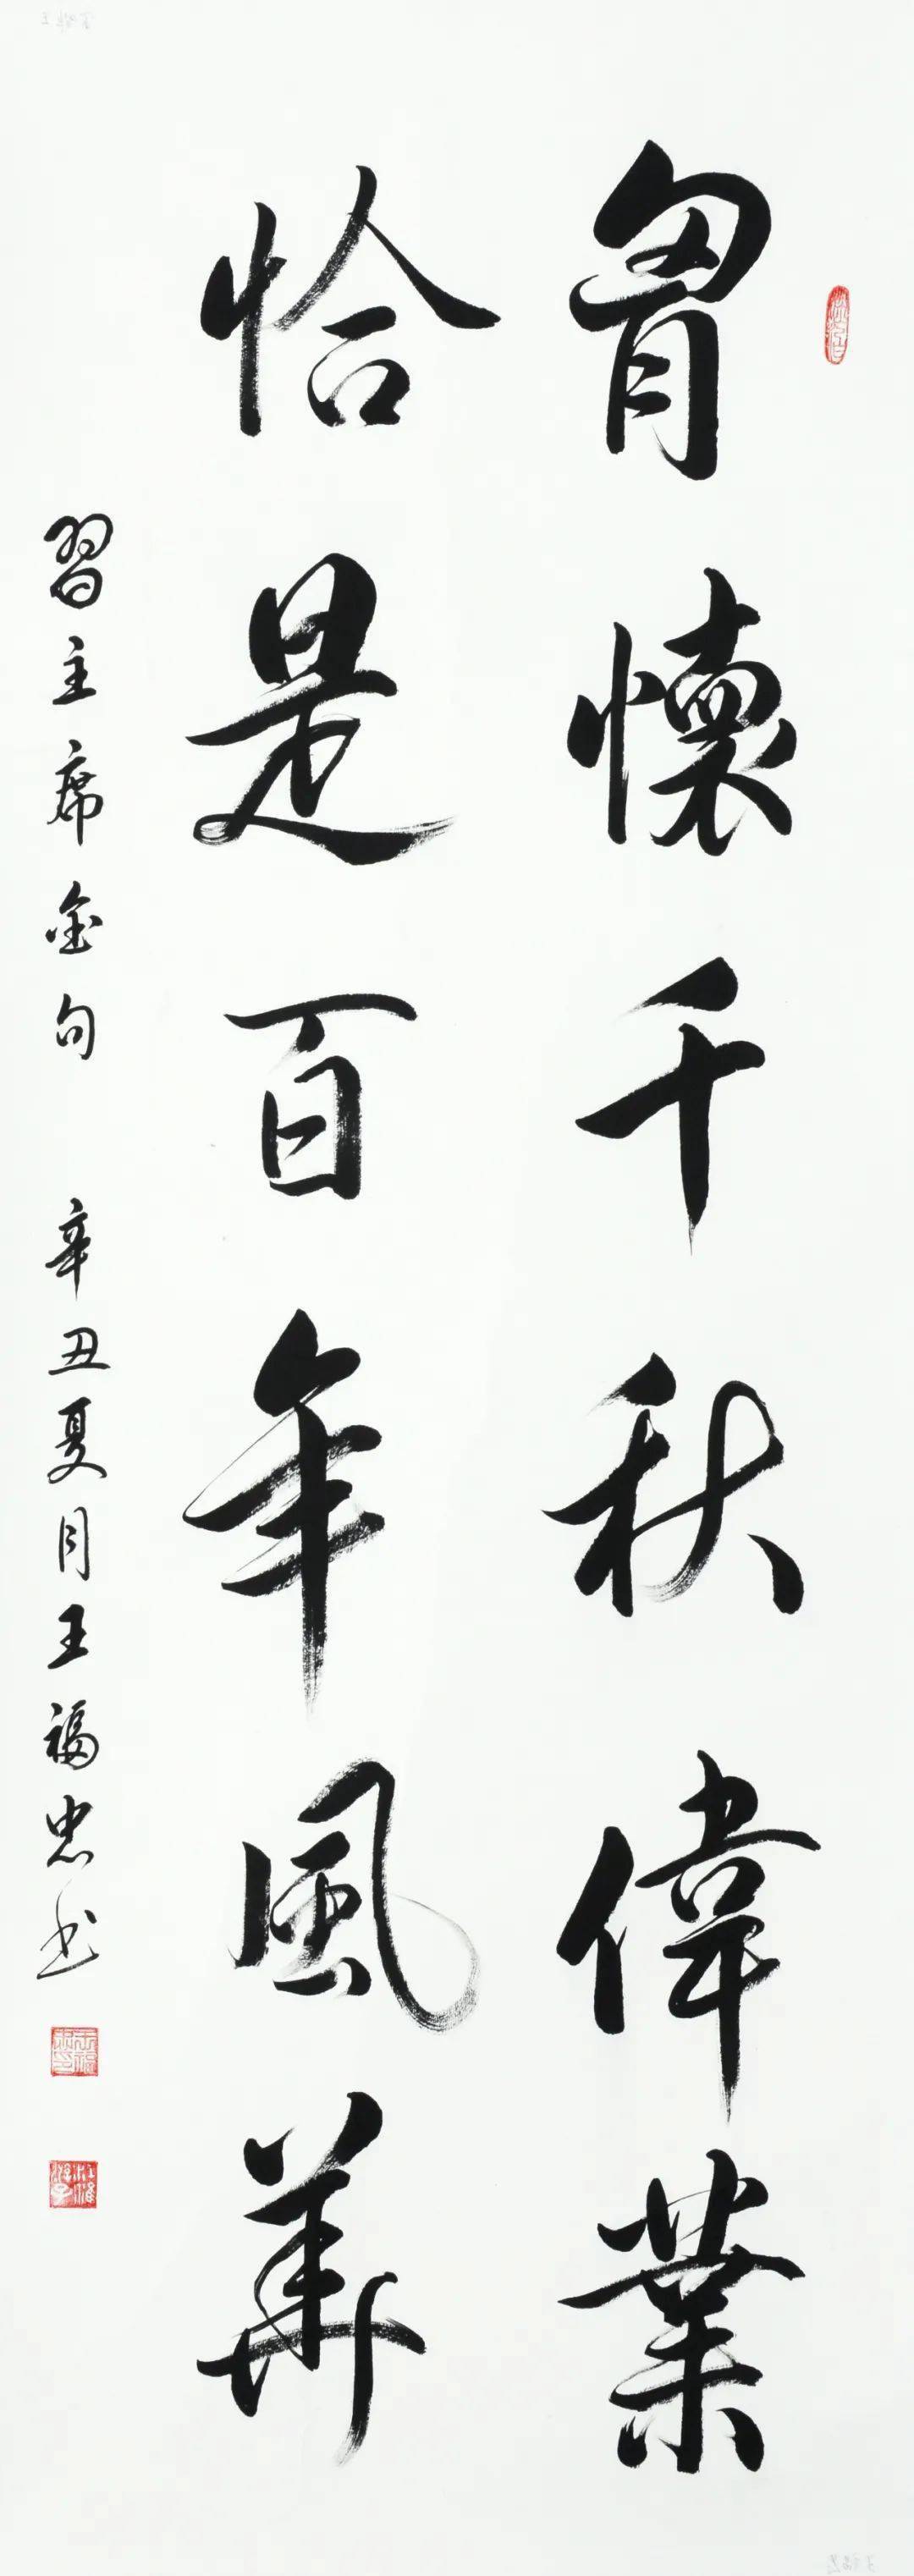 胷懷千秋偉業
恰是百年風華
習主席金句 辛丑夏月王福忠书